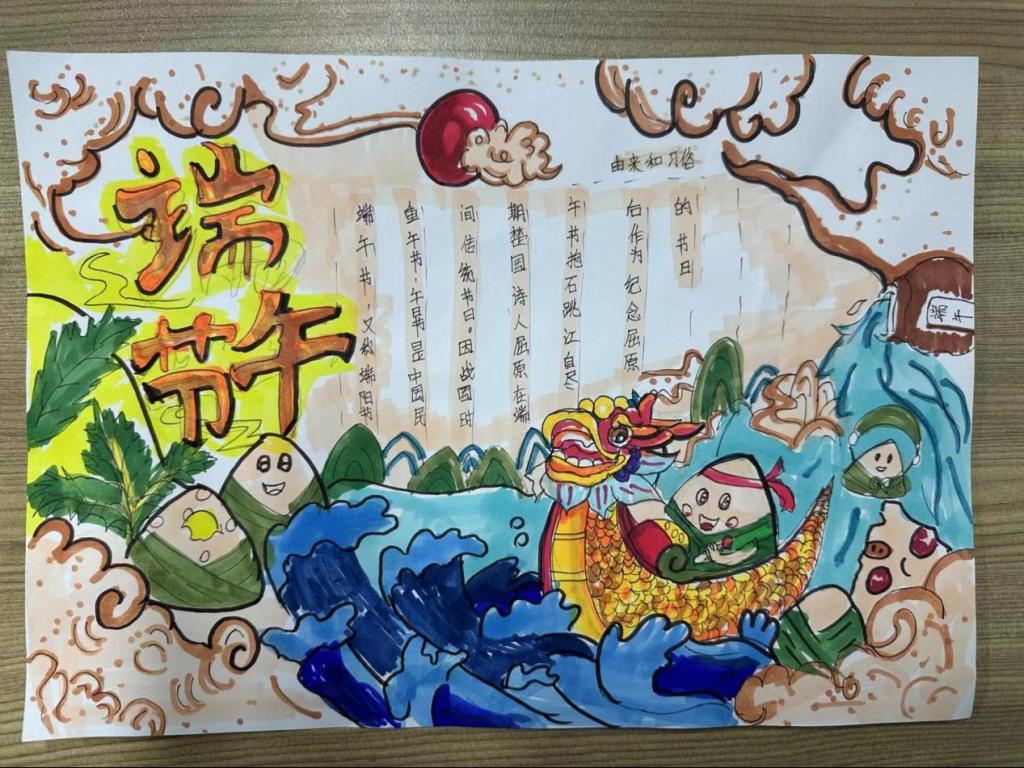 端午节
由来和习俗
端午节，又称端阳节
重午节，午日节是中国民
间传统节日。因战国时
期楚国诗人屈原在端
午节抱石跳江自尽
后作为纪念屈原
的节日
端午